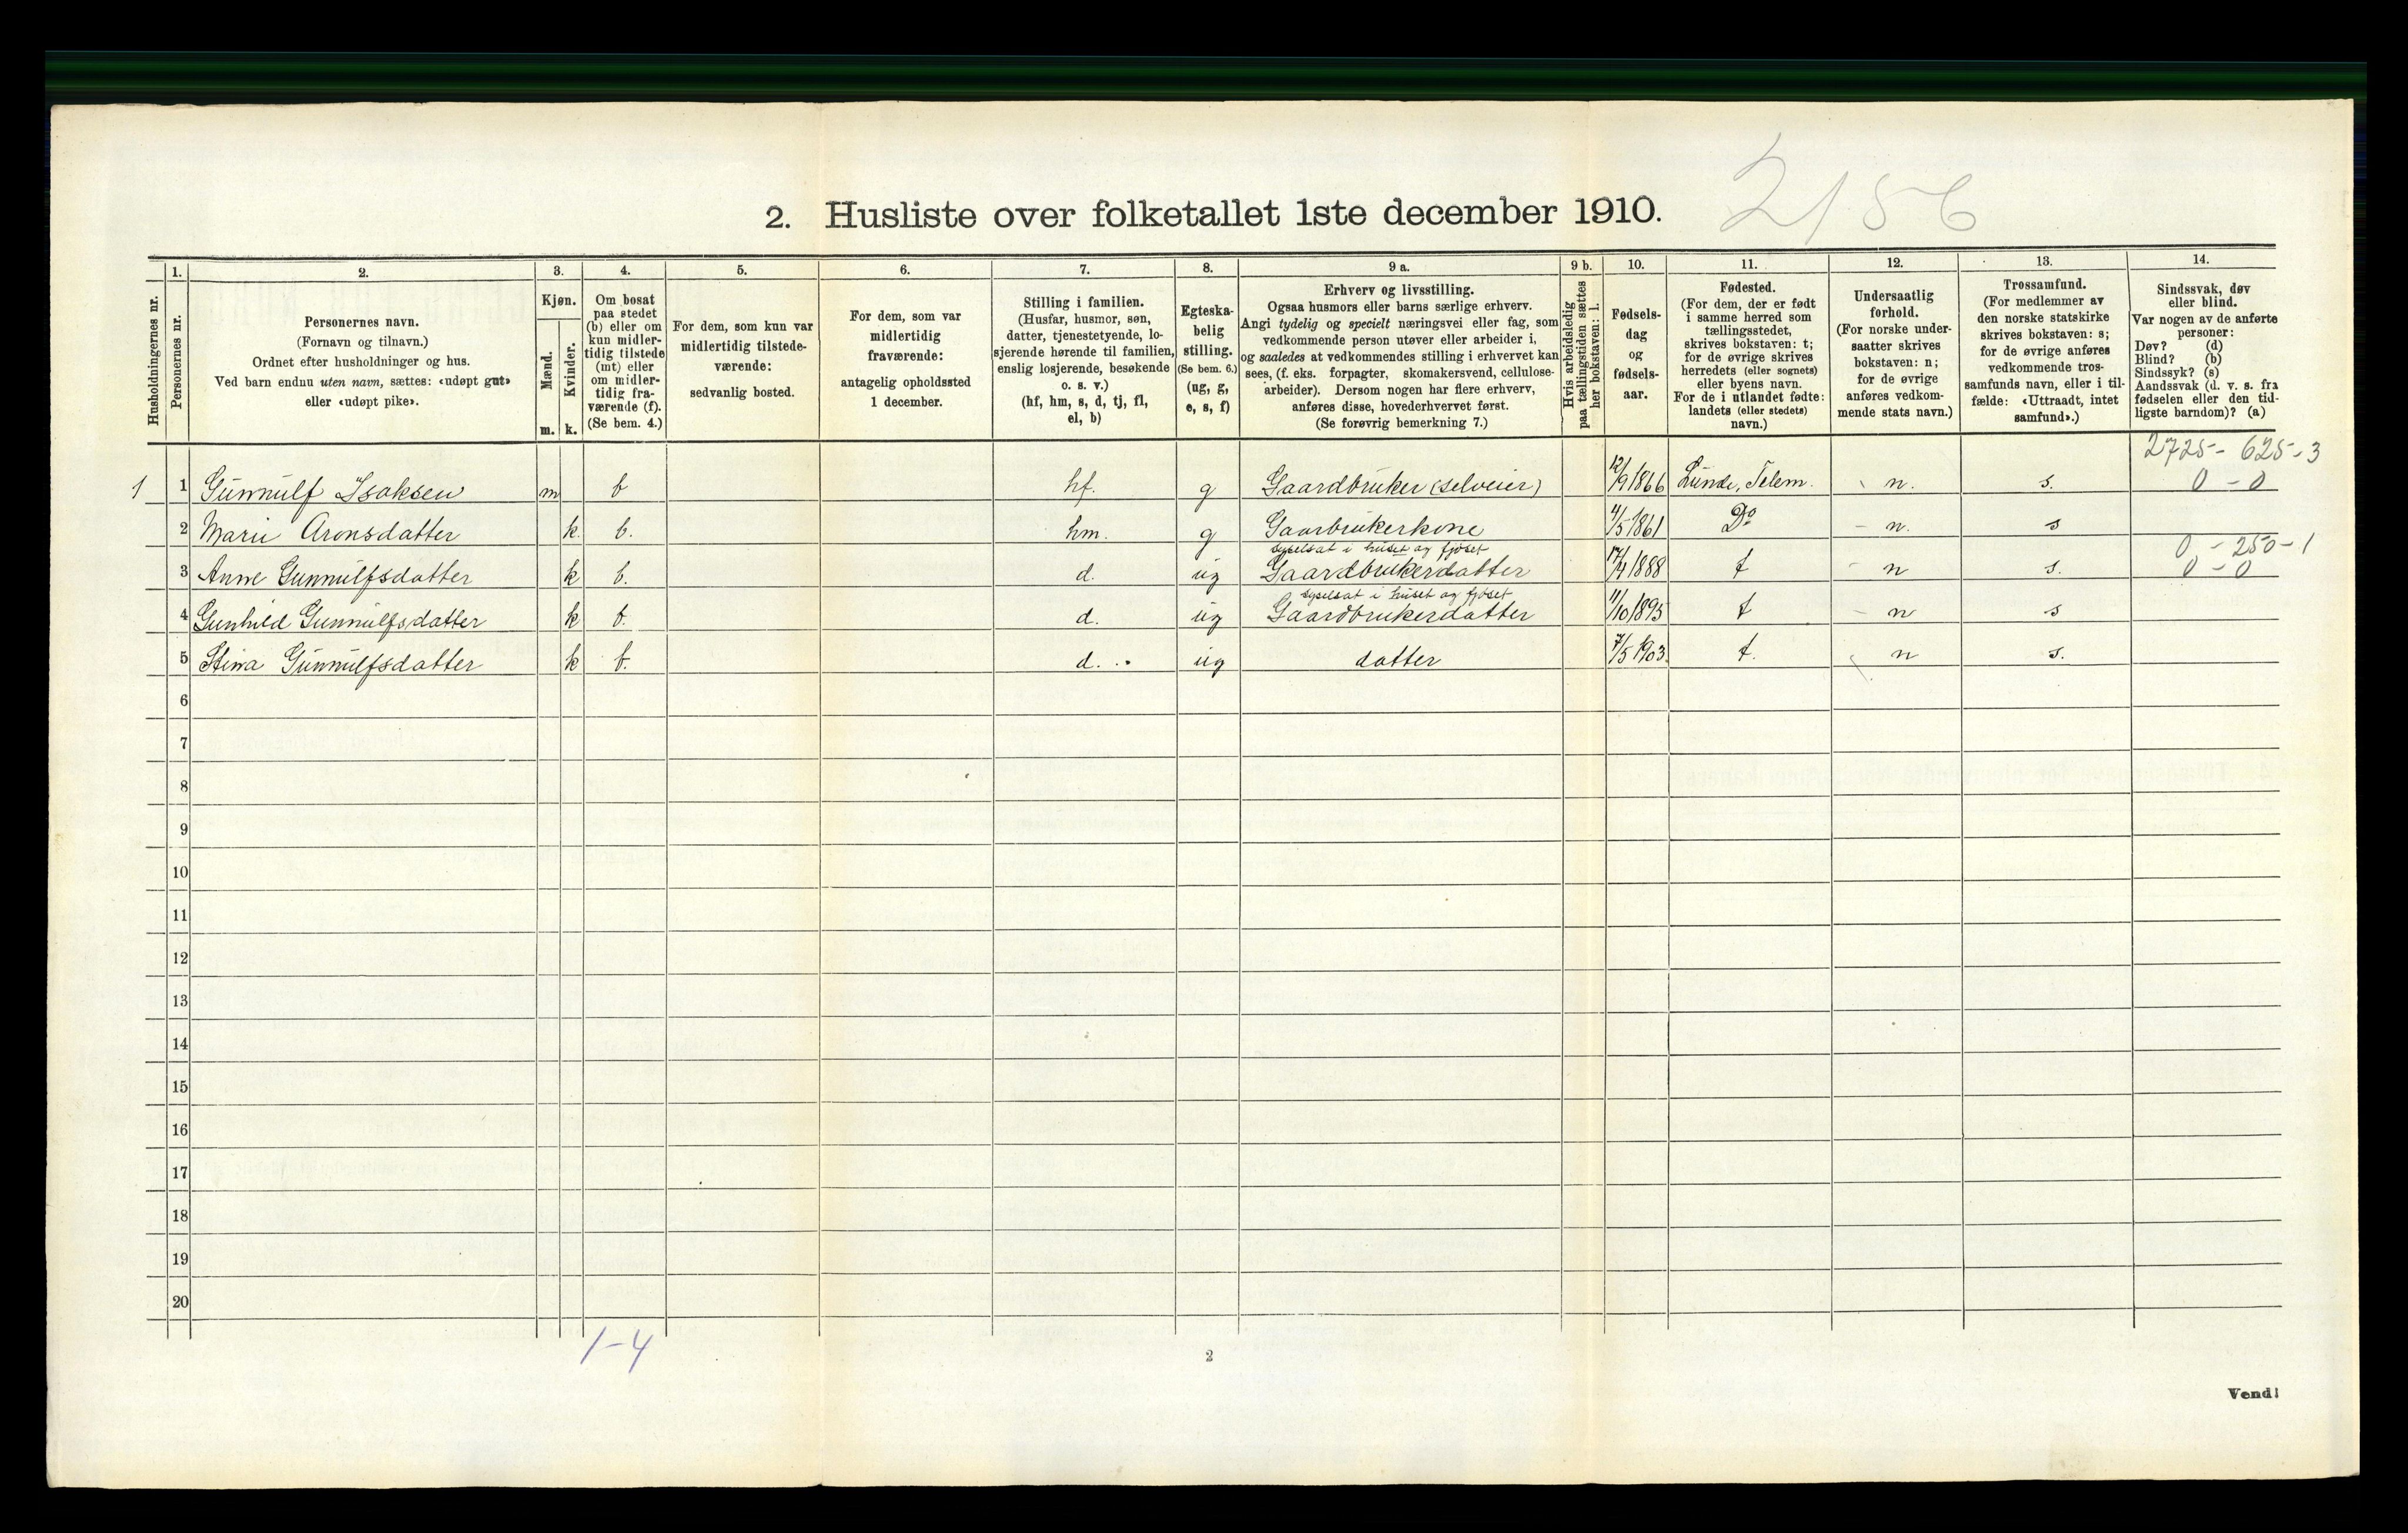 2156
2. Husliste over folketallet 1ste december 1910.
Husholdningernes nr.
1.
Personernes nr.
2.
Personernes navn.
(Fornavn og tilnavn.)
Ordnet efter husholdninger og hus.
Ved barn endnu uten navn, sættes: «udøpt gut»
eller «udøpt pike».
3.
Kjøn.
Mænd.
Kvinder.
m.
k.
4.
Om bosat
paa stedet
(b) eller om
kun midler-
tidig tilstede
(mt) eller
om midler-
tidig fra-
værende (f).
(Se bem. 4.)
5.
For dem, som kun var
midlertidig tilstede-
værende:
sedvanlig bosted.
6.
For dem, som var
midlertidig
fraværende:
antagelig opholdssted
1 december.
7.
Stilling i familien.
(Husfar, husmor, søn,
datter, tjenestetyende, lo-
sjerende hørende til familien,
enslig losjerende, besøkende
o. s. v.)
(hf, hm, s, d, tj, fl,
el, b)
8.
Egteska-
belig
stilling.
(Se bem. 6.)
(ug, g,
e, s, f)
9 a.
Erhverv og livsstilling.
Ogsaa husmors eller barns særlige erhverv.
Angi tydelig og specielt næringsvei eller fag, som
vedkommende person utøver eller arbeider i,
og saaledes at vedkommendes stilling i erhvervet kan
sees, (f. eks. forpagter, skomakersvend, cellulose-
arbeider). Dersom nogen har flere erhverv,
anføres disse, hovederhvervet først.
(Se forøvrig bemerkning 7.)
9 b.
Hvis arbeidsledig
paa tællingstiden sættes
her bokstaven: l.
10.
Fødsels-
dag
og
fødsels-
aar.
11.
Fødested.
(For dem, der er født
i samme herred som
tællingsstedet,
skrives bokstaven: t;
for de øvrige skrives
herredets (eller sognets)
eller byens navn.
For de i utlandet fødte:
landets (eller stedets)
navn.)
12.
Undersaatlig
forhold.
(For norske under-
saatter skrives
bokstaven: n;
for de øvrige
anføres vedkom-
mende stats navn.)
13.
Trossamfund.
(For medlemmer av
den norske statskirke
skrives bokstaven: s;
for de øvrige anføres
vedkommende tros-
samfunds navn, eller i til-
fælde: «Uttraadt, intet
samfund».)
14.
Sindssvak, døv
eller blind.
Var nogen av de anførte
personer:
Døv? (d)
Blind? (b)
Sindssyk? (s)
Aandssvak (d. v. s. fra
fødselen eller den tid-
ligste barndom)? (a)
2725 - 625 - 3
1 1 Gunnulf Isaksen m b hf. g Gaardbruker (selveier) 12/9 1866 Lunde, Telem. n. s. 0 - 0
2 Marie Aronsdatter k. b. hm. g Gaarbrukerkone 4/5 1861 Do n. s
syselsat i huset og fjøset 0 - 250 - 1
3 Anne Gunnulfsdatter k b. d. ug Gaardbrukerdatter 1888 t n s. 0 - 0
syselsat i huset og fjøset
4 Gunhild Gunnulfsdatter k b. d. ug Gaardbrukerdatter 11/10 1895 t n s
5 Stina Gunnulfsdatter k b. d. ug datter 7/5 1903. t. n s.
6
7
8
9
10
11
12
13
14
15
16
17
18
19
20
1-4
2
Vend!